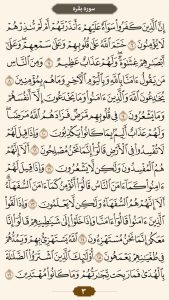 سوره بقره
إِنَّ ٱلَّذِينَ كَفَرُوا۟ سَوَآءٌ عَلَيْهِمْ ءَأَنذَرْتَهُمْ أَمْ لَمْ تُنذِرْهُمْ
لَا يُؤْمِنُونَ ۝٦ خَتَمَ ٱللَّهُ عَلَىٰ قُلُوبِهِمْ وَعَلَىٰ سَمْعِهِمْ وَعَلَىٰٓ
أَبْصَٰرِهِمْ غِشَٰوَةٌ وَلَهُمْ عَذَابٌ عَظِيمٌ ۝٧ وَمِنَ ٱلنَّاسِ
مَن يَقُولُ ءَامَنَّا بِٱللَّهِ وَبِٱلْيَوْمِ ٱلْءَاخِرِ وَمَا هُم بِمُؤْمِنِينَ ۝٨
يُخَٰدِعُونَ ٱللَّهَ وَٱلَّذِينَ ءَامَنُوا۟ وَمَا يَخْدَعُونَ إِلَّآ أَنفُسَهُمْ
وَمَا يَشْعُرُونَ ۝٩ فِى قُلُوبِهِم مَّرَضٌ فَزَادَهُمُ ٱللَّهُ مَرَضًا
وَلَهُمْ عَذَابٌ أَلِيمٌۢ بِمَا كَانُوا۟ يَكْذِبُونَ ۝١٠ وَإِذَا قِيلَ لَهُمْ
لَا تُفْسِدُوا۟ فِى ٱلْأَرْضِ قَالُوٓا۟ إِنَّمَا نَحْنُ مُصْلِحُونَ ۝١١ أَلَآ إِنَّهُمْ
هُمُ ٱلْمُفْسِدُونَ وَلَٰكِن لَّا يَشْعُرُونَ ۝١٢ وَإِذَا قِيلَ لَهُمْ
ءَامِنُوا۟ كَمَآ ءَامَنَ ٱلنَّاسُ قَالُوٓا۟ أَنُؤْمِنُ كَمَآ ءَامَنَ ٱلسُّفَهَآءُ
أَلَآ إِنَّهُمْ هُمُ ٱلسُّفَهَآءُ وَلَٰكِن لَّا يَعْلَمُونَ ۝١٣ وَإِذَا لَقُوا۟
ٱلَّذِينَ ءَامَنُوا۟ قَالُوٓا۟ ءَامَنَّا وَإِذَا خَلَوْا۟ إِلَىٰ شَيَٰطِينِهِمْ قَالُوٓا۟ إِنَّا
مَعَكُمْ إِنَّمَا نَحْنُ مُسْتَهْزِءُونَ ۝١٤ ٱللَّهُ يَسْتَهْزِئُ بِهِمْ وَيَمُدُّهُمْ
فِى طُغْيَٰنِهِمْ يَعْمَهُونَ ۝١٥ أُو۟لَٰٓئِكَ ٱلَّذِينَ ٱشْتَرَوُا۟ ٱلضَّلَٰلَةَ
بِٱلْهُدَىٰ فَمَا رَبِحَت تِّجَٰرَتُهُمْ وَمَا كَانُوا۟ مُهْتَدِينَ ۝١٦
٣